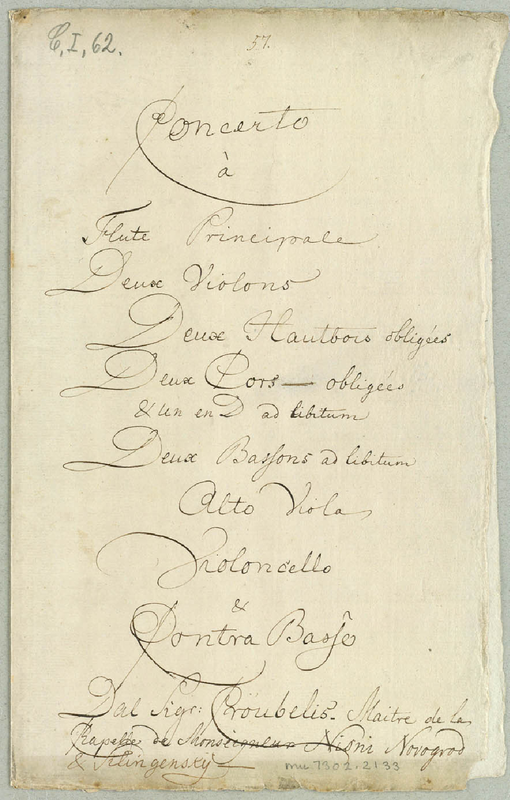 C, I, 62.
57.
Concerto
à
Flute Principale
Deux Violons
Deux Hautbois obligées
Deux Cors — obligées
& un en D ad libitum
Deux Bassons ad libitum
Alto Viola
Violoncello
&
Contra Basse
Dal Sigr: Croubelis. Maitre de la
Kapelle de Monseigneur Nisni Novogrod
& Klingensky
mu 7302.2133